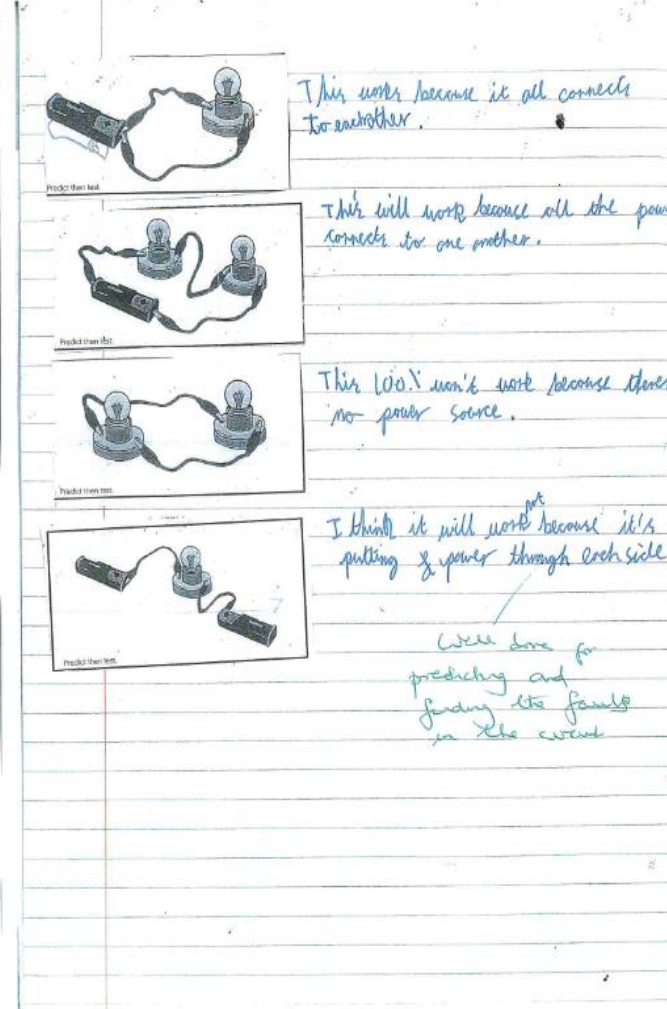 This works because it all connects
to eachother.
Predict then test.
This will work because all the pow
connects to one another.
Predict then test.
This 100% won't work because theres
no power source.
Predict then test.
I think it will work not because it's
putting power through each side
Predict then test.
Well done for
predicting and
finding the faults
in the circuit